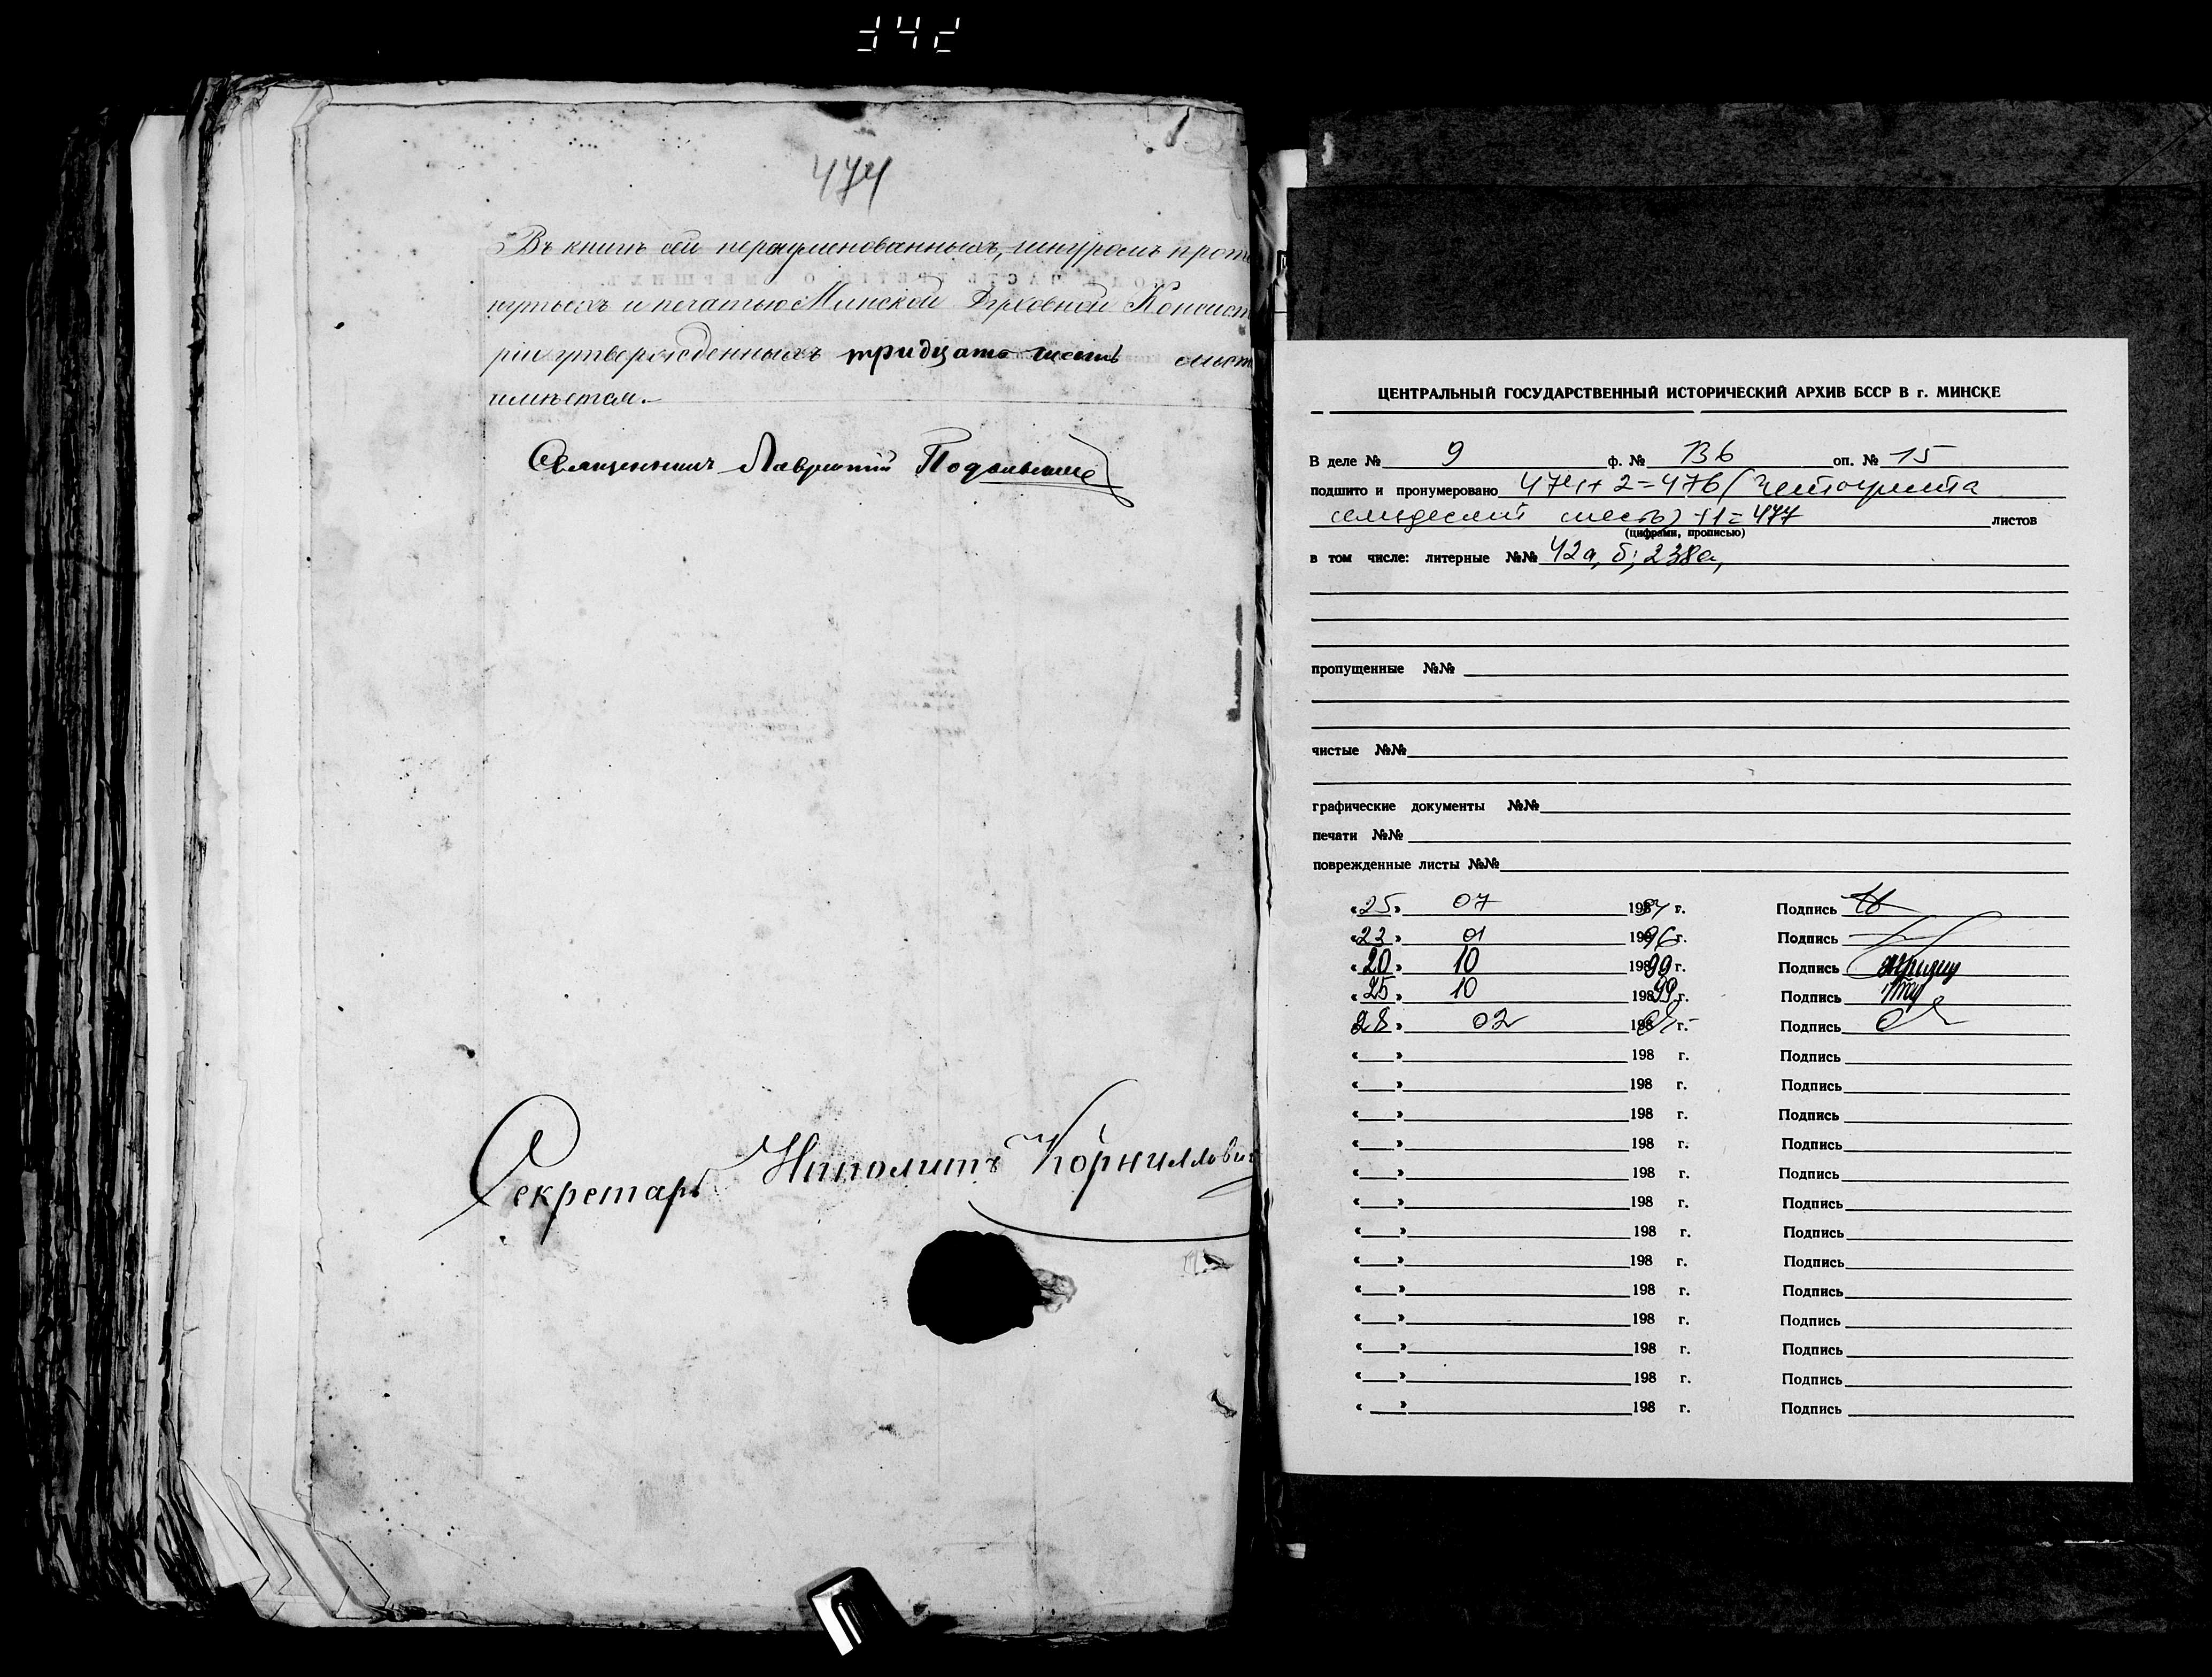 474
Въ книгѣ сей перенумерованныхъ, шнуромъ протя
нутыхъ и печатью Минской Духовной Консисто
ріи утвержденныхъ тридцать шесть лист
имѣется.
Священникъ Лаврентій
Секретарь Ипполитъ Корнилович
ЦЕНТРАЛЬНЫЙ ГОСУДАРСТВЕННЫЙ ИСТОРИЧЕСКИЙ АРХИВ БССР В г. МИНСКЕ
В деле № 9 ф. № 136 оп. № 15
подшито и пронумеровано 474+2=476 (четыреста
семьдесят шесть) +1=477 листов
(цифрами, прописью)
в том числе: литерные №№ 42а, б; 238а,
пропущенные №№
чистые №№
графические документы №№
печати №№
поврежденные листы №№
«25» 07 198 г. Подпись
«23» 01 1996 г. Подпись
«20» 10 1999 г. Подпись
«25» 10 1999 г. Подпись
«28» 02 198 г. Подпись
«__» 198 г. Подпись
«__» 198 г. Подпись
«__» 198 г. Подпись
«__» 198 г. Подпись
«__» 198 г. Подпись
«__» 198 г. Подпись
«__» 198 г. Подпись
«__» 198 г. Подпись
«__» 198 г. Подпись
«__» 198 г. Подпись
«__» 198 г. Подпись
«__» 198 г. Подпись
«__» 198 г. Подпись